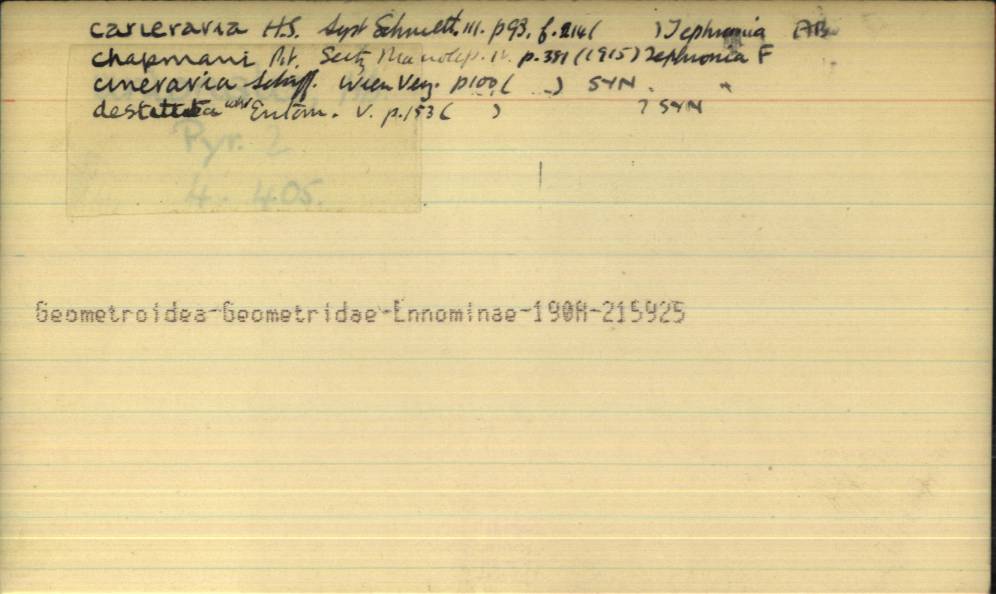 carieraria H.S. Syst Schmett. III. p93. f.214( ) Tephronia AB
chapmani Pt. Seitz Macrolep. IV. p.391 (1915) Tephronia F
cineraria Schiff. Wien Verz. p100 ( ) SYN. "
destituta Entom. V. p.153 ( ) ? SYN
Pyr. 2
4. 405.
Geometroidea-Geometridae-Ennominae-190H-215925